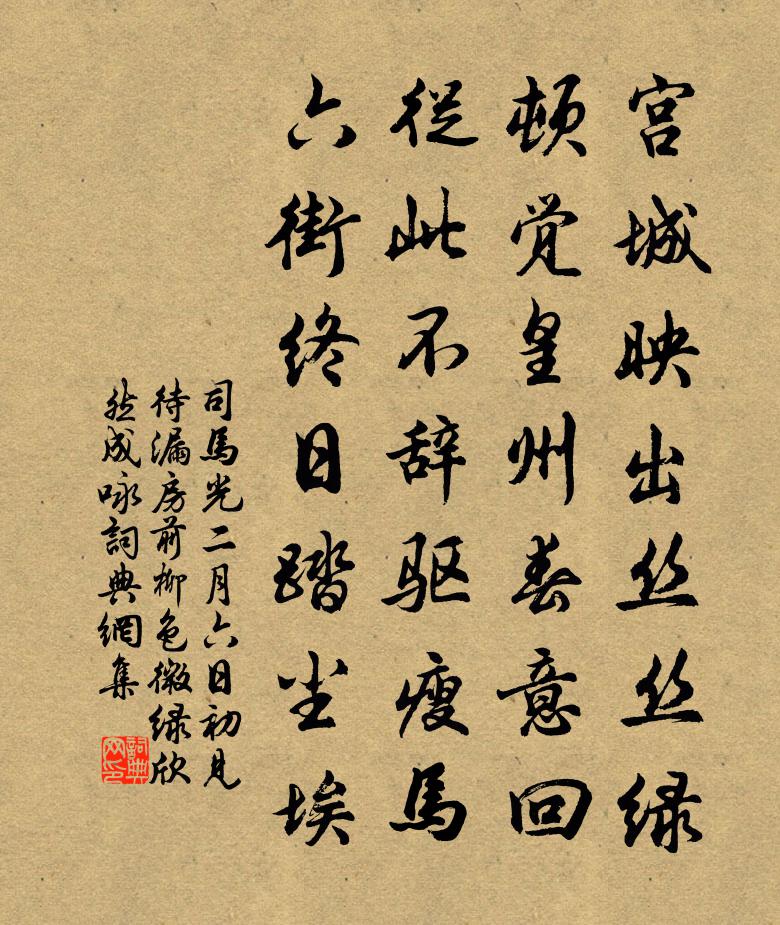 宫城映出丝丝绿
顿觉皇州春意回
從此不辞驱瘦馬
六街终日踏尘埃
司馬光二月六日初见
待漏房前柳色微绿欣
然成咏詞典網集
詞典网印